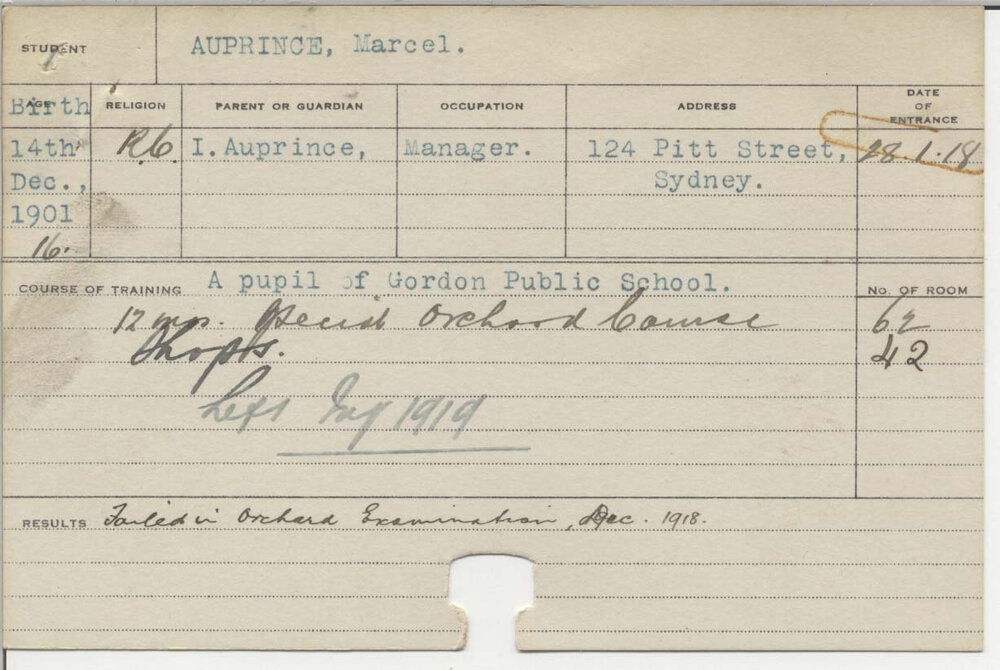 STUDENT AUPRINCE, Marcel.
Birth AGE RELIGION PARENT OR GUARDIAN OCCUPATION ADDRESS DATE OF ENTRANCE
14th R.C. I. Auprince, Manager. 124 Pitt Street, 28.1.18
Dec., Sydney.
1901
16.
COURSE OF TRAINING A pupil of Gordon Public School. No. OF ROOM
12 mos. Special Orchard Course 62
42
Left 1919
RESULTS Failed in Orchard Examination, Dec. 1918.